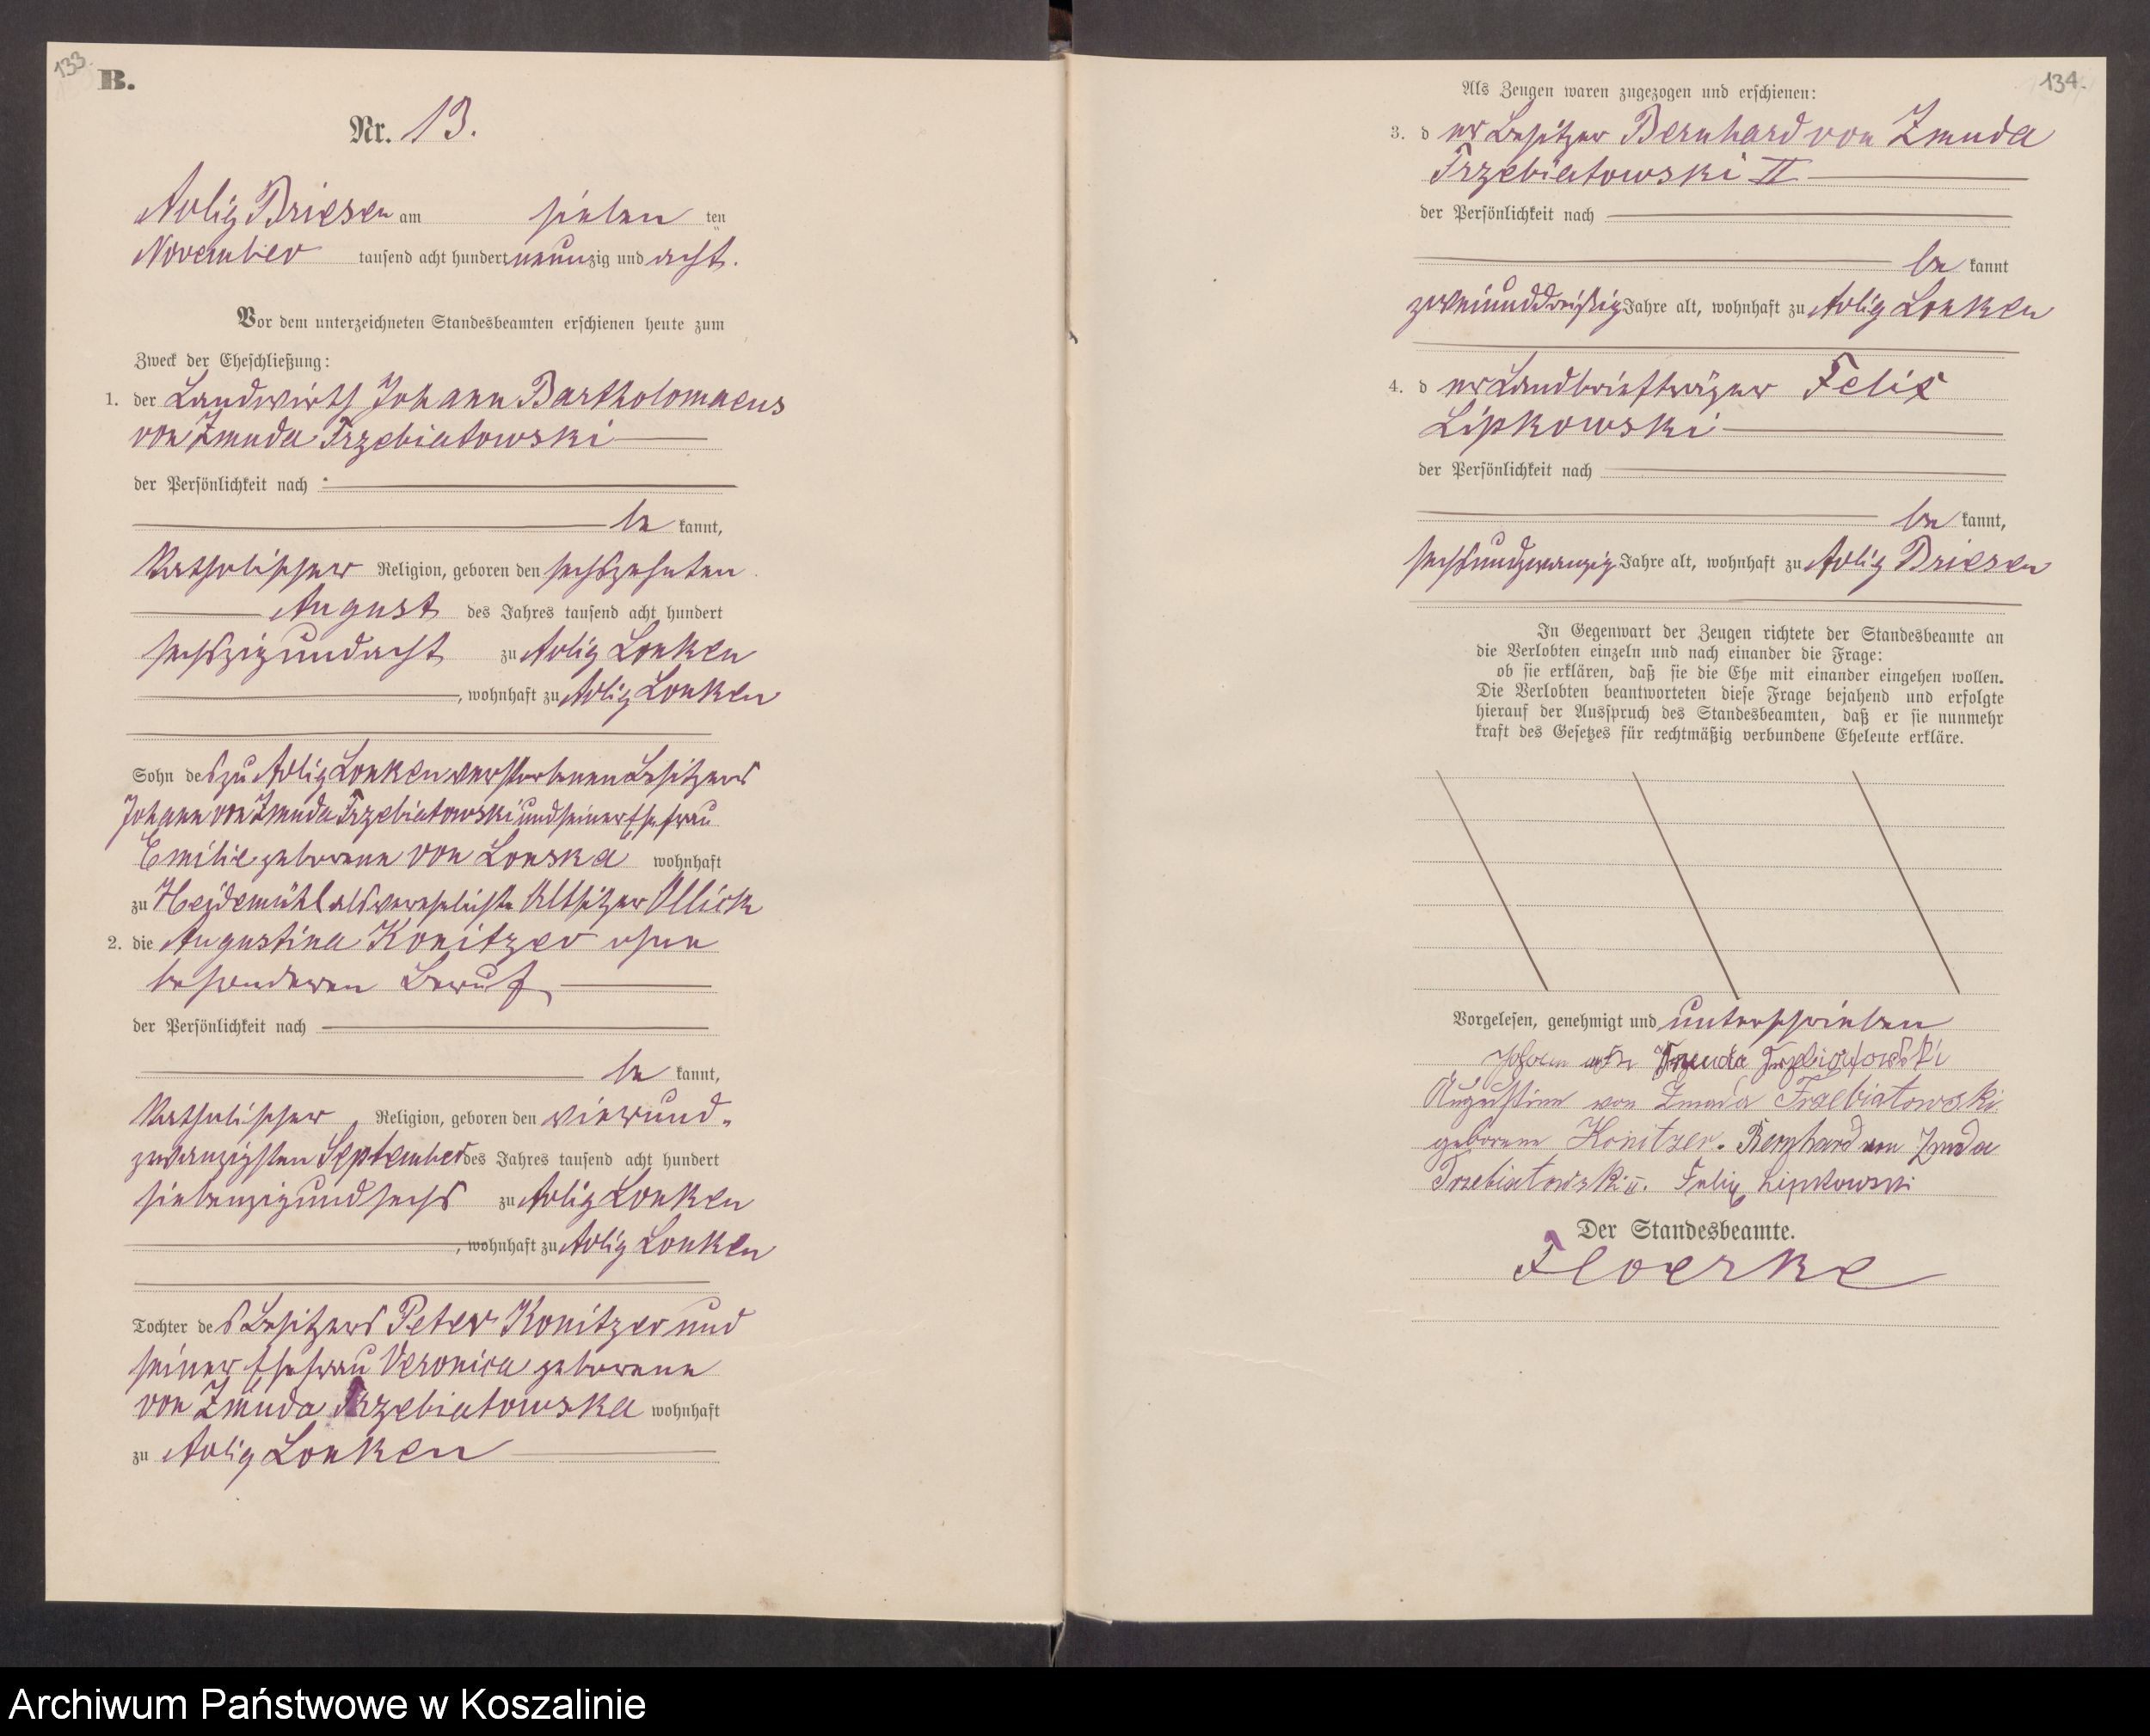 133.
B.
Nr. 13.
Adlig Briesen am sieben ten
November tausend acht hundert neunzig und acht.
Vor dem unterzeichneten Standesbeamten erschienen heute zum
Zweck der Eheschließung:
1. der Landwirth Johann Bartholomaeus
von Zmuda Trzebiatowski
der Persönlichkeit nach
be kannt,
katholischer Religion, geboren den sechszehnten
August des Jahres tausend acht hundert
sechszig und acht zu Adlig Lonken
, wohnhaft zu Adlig Lonken
Sohn des zu Adlig Lonken verstorbenen Besitzers
Johann von Zmuda Trzebiatowski und seiner Ehefrau
Emilie geborene von Lonska wohnhaft
zu Heidemühl als verehelichte Altsitzer Ollick
2. die Augustina Konitzer ohne
besonderen Beruf
der Persönlichkeit nach
be kannt,
katholischer Religion, geboren den vierund-
zwanzigsten September des Jahres tausend acht hundert
siebenzig und sechs zu Adlig Lonken
, wohnhaft zu Adlig Lonken
Tochter des Besitzers Peter Konitzer und
seiner Ehefrau Veronica geborene
von Zmuda Trzebiatowska wohnhaft
zu Adlig Lonken
134.
Als Zeugen waren zugezogen und erschienen:
3. d er Besitzer Bernhard von Zmuda
Trzebiatowski II
der Persönlichkeit nach
be kannt
zweiunddreißig Jahre alt, wohnhaft zu Adlig Lonken
4. d er Landbriefträger Felix
Lipkowski
der Persönlichkeit nach
be kannt,
sechsundzwanzig Jahre alt, wohnhaft zu Adlig Briesen
In Gegenwart der Zeugen richtete der Standesbeamte an
die Verlobten einzeln und nach einander die Frage:
ob sie erklären, daß sie die Ehe mit einander eingehen wollen.
Die Verlobten beantworteten diese Frage bejahend und erfolgte
hierauf der Ausspruch des Standesbeamten, daß er sie nunmehr
kraft des Gesetzes für rechtmäßig verbundene Eheleute erkläre.
Vorgelesen, genehmigt und unterschrieben
Johann von Zmuda Trzebiatowski
Augustine von Zmuda Trzebiatowski
geborene Konitzer. Bernhard von Zmuda
Trzebiatowski II. Felix Lipkowski
Der Standesbeamte.
Floerke
Archiwum Państwowe w Koszalinie